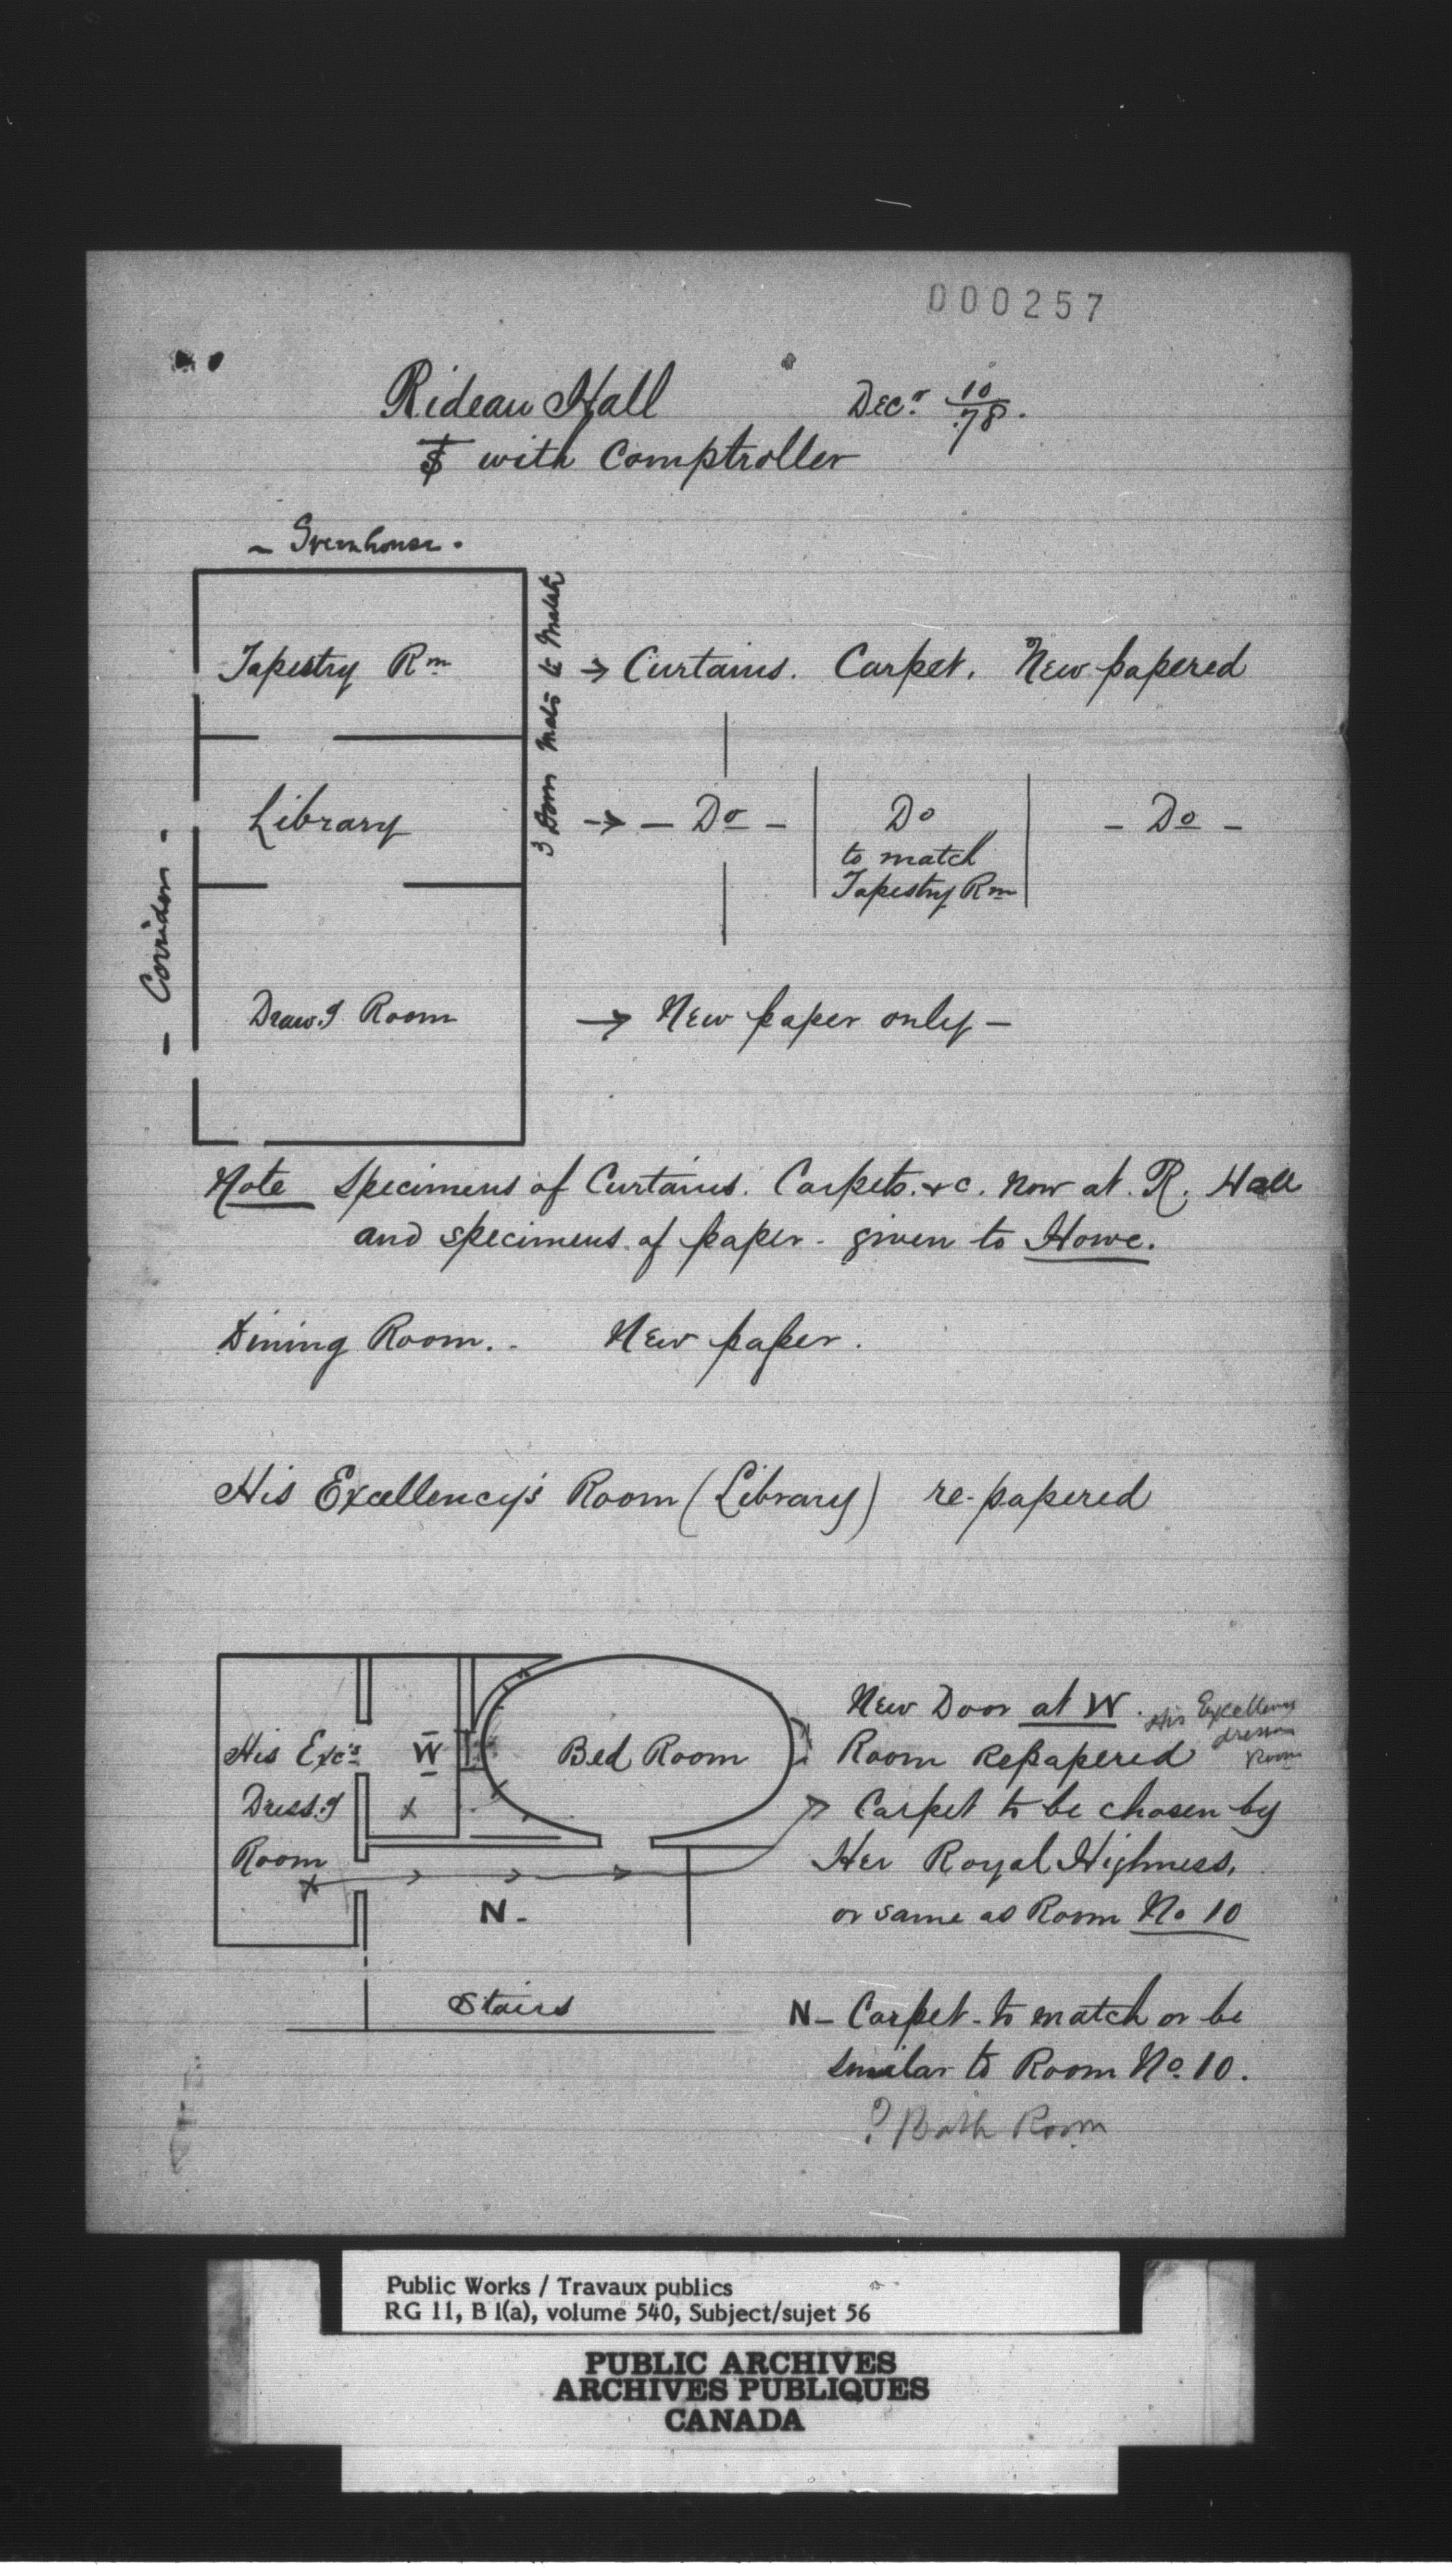 000257
Rideau Hall Decr 10/78.
with Comptroller
- Greenhouse -
Tapestry Rm → Curtains. Carpet. New papered
3 Door Mats to Match
Library → - Do - | Do | - Do -
to match
Tapestry Rm
- Corridor -
Draw.g Room → New paper only -
Note Specimens of Curtains. Carpets. &c. now at R. Hall
and specimens of paper - given to Howe.
Dining Room.. New paper.
His Excellency's Room (Library) re-papered
New Door at W. His Excellency
dressn
Room
His Exc's W Bed Room Room Repapered
Dress.g x Carpet to be chosen by
Room Her Royal Highness,
x N- or same as Room No 10
Stairs N- Carpet - to match or be
similar to Room No. 10.
? Bath Room
Public Works / Travaux publics
RG 11, B 1(a), volume 540, Subject/sujet 56
PUBLIC ARCHIVES
ARCHIVES PUBLIQUES
CANADA